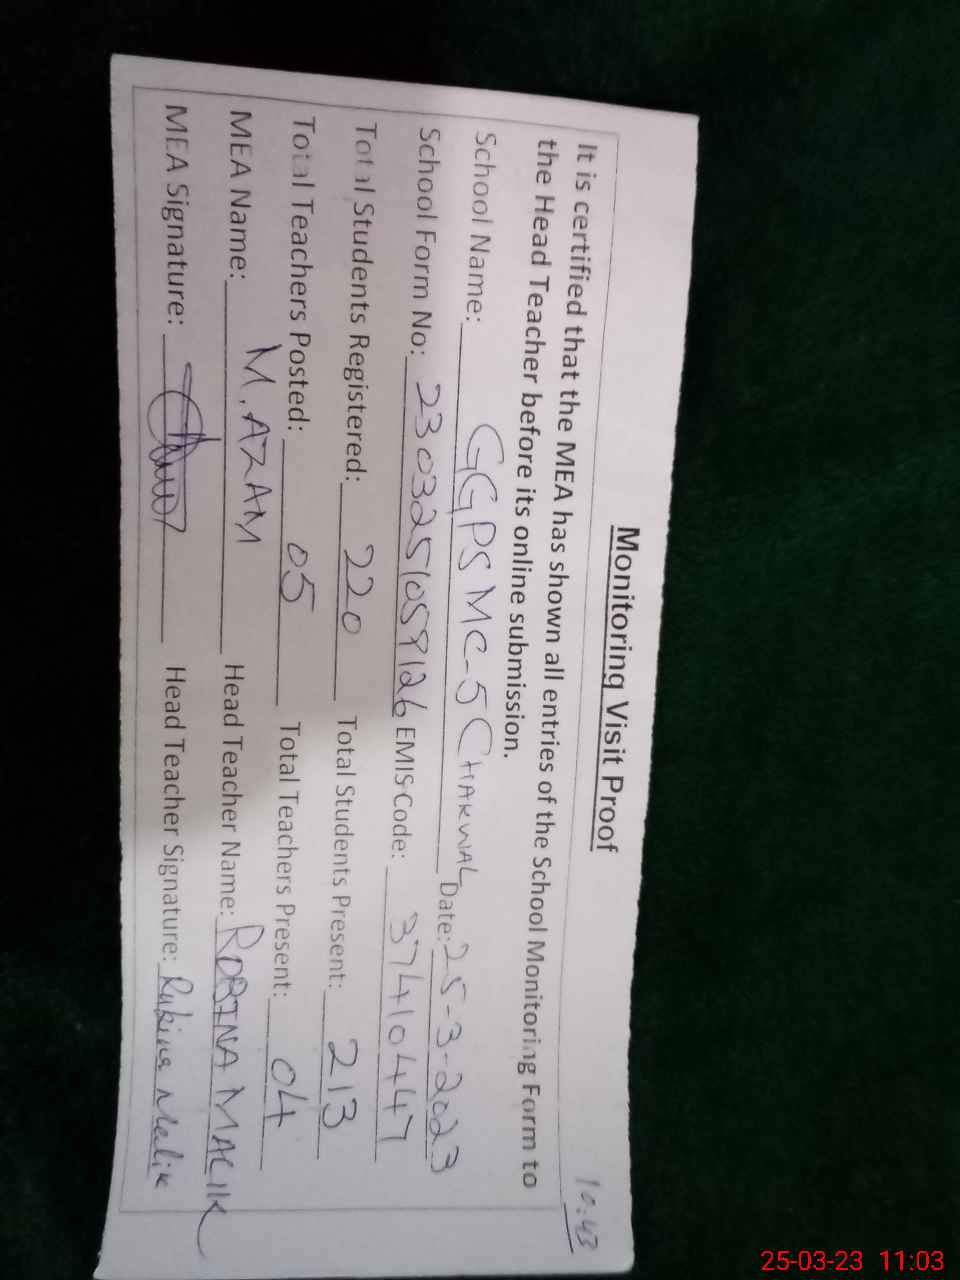 10:43
Monitoring Visit Proof
It is certified that the MEA has shown all entries of the School Monitoring Form to
the Head Teacher before its online submission.
School Name: GGPS MC-5 CHAKWAL Date: 25-3-2023
School Form No: 2303251059126 EMIS Code: 37410447
Total Students Registered: 220 Total Students Present: 213
Total Teachers Posted: 05 Total Teachers Present: 04
MEA Name: M. AZAM Head Teacher Name: ROBINA MALIK
MEA Signature: Head Teacher Signature: Rubina Malik
25-03-23 11:03